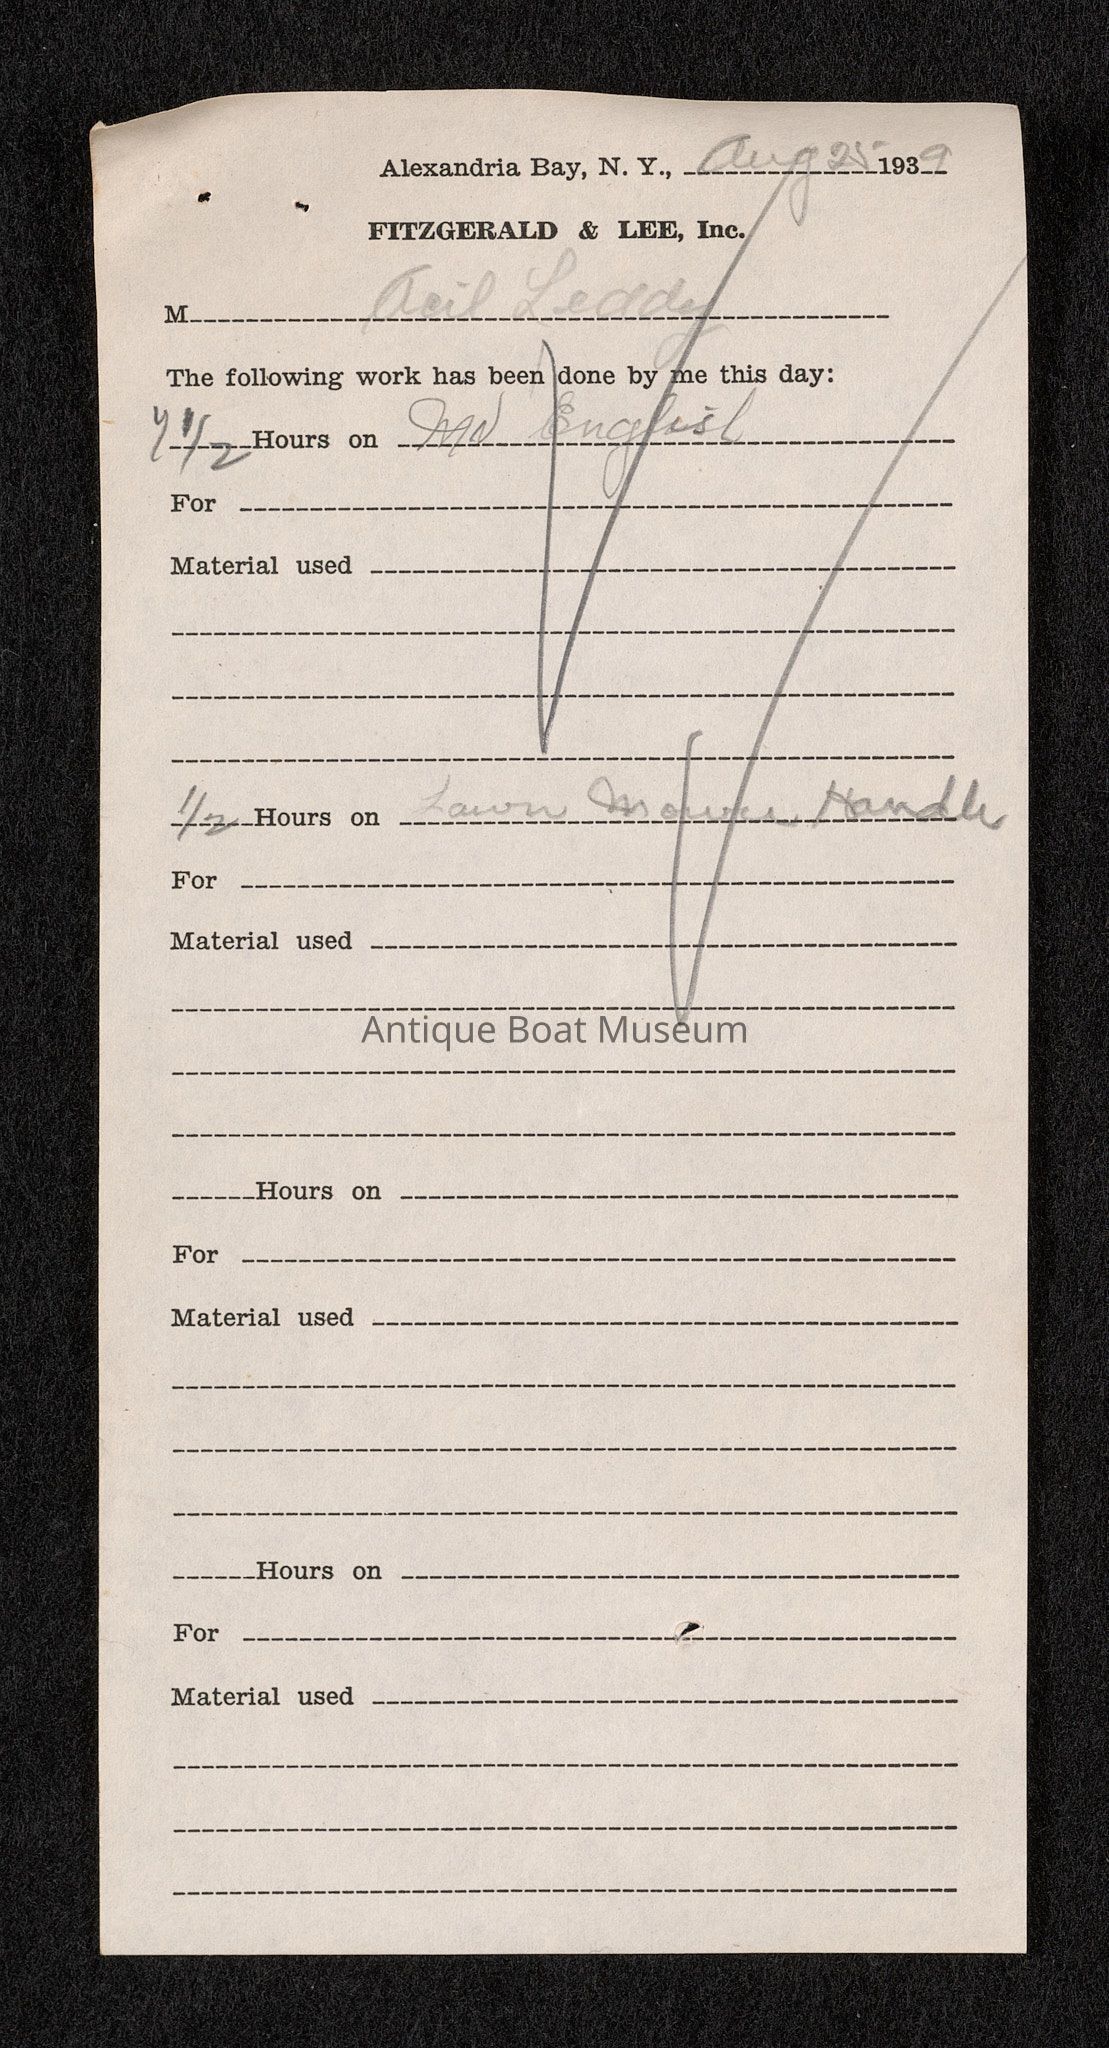 Alexandria Bay, N. Y., Aug 25 1939
FITZGERALD & LEE, Inc.
M Leddy
The following work has been done by me this day:
7 1/2 Hours on English
For
Material used
1/2 Hours on Lawn Mower Handle
For
Material used
Antique Boat Museum
Hours on
For
Material used
Hours on
For
Material used